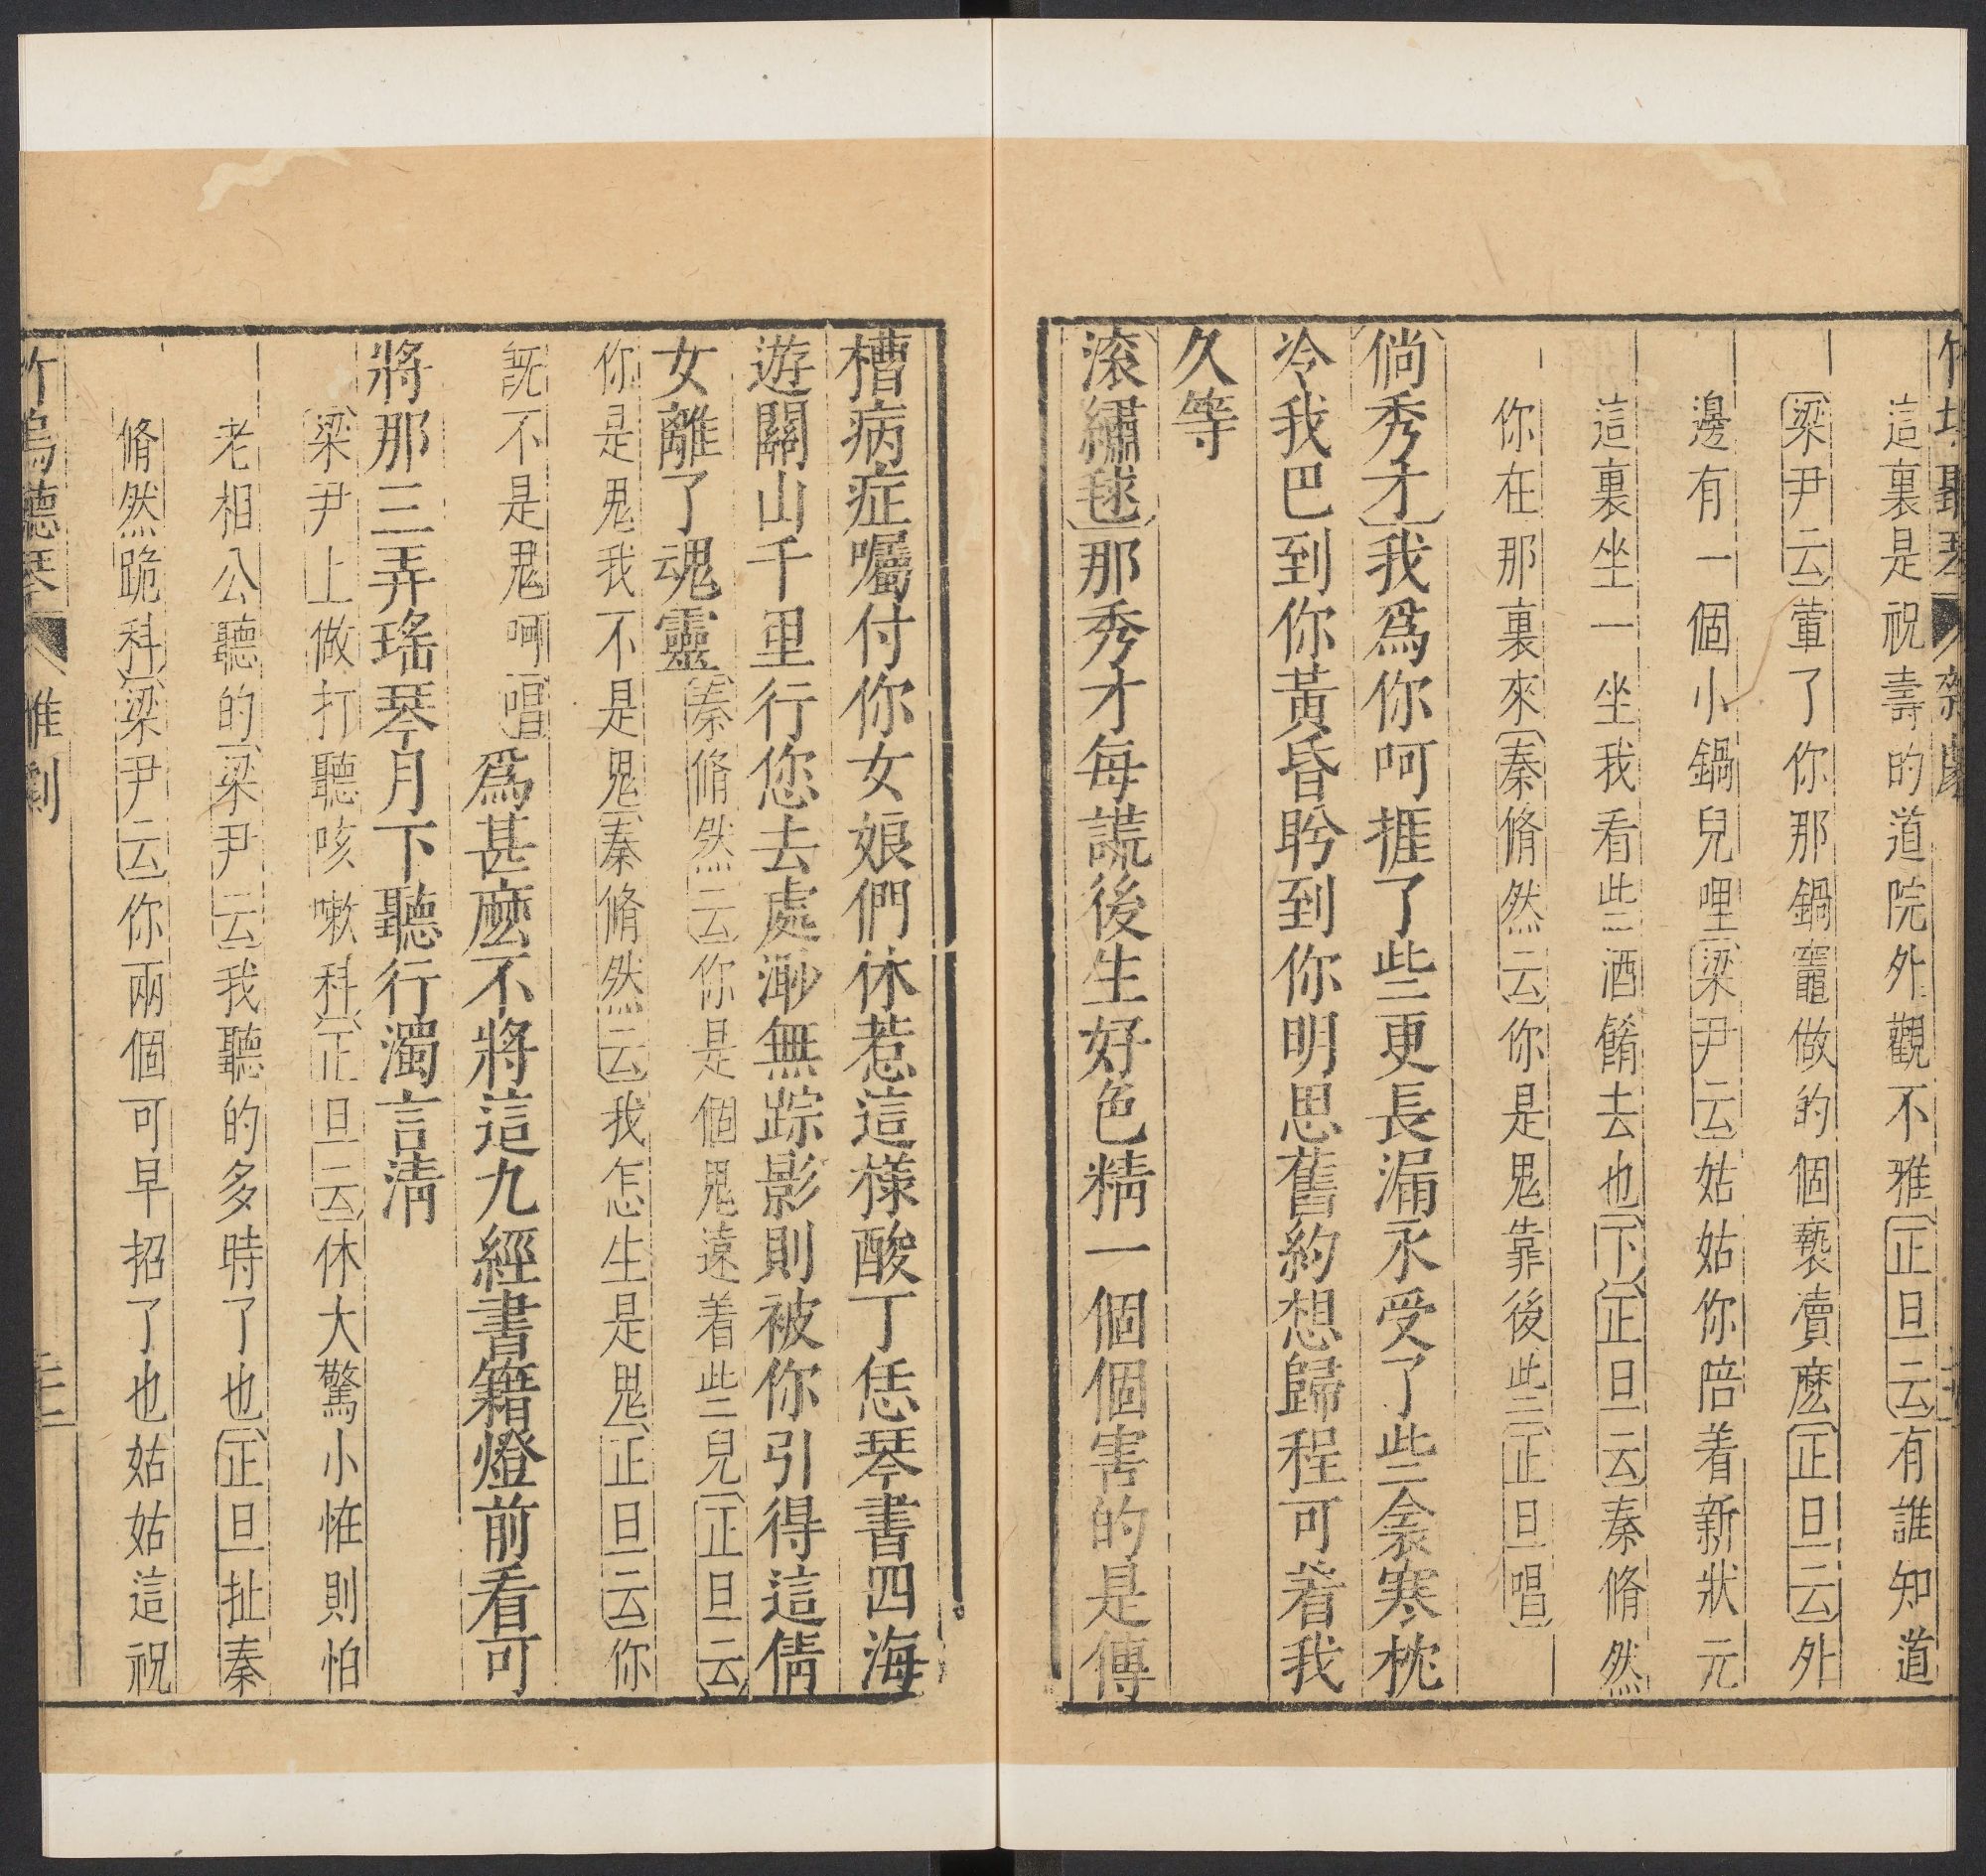 這裏是祝壽的道院外觀不雅正旦云有誰知道
梁尹云葷了你那鍋竈做的個褻瀆麽正旦云外
邊有一個小鍋兒哩梁尹云姑姑你陪着新狀元
這裏坐一坐我看些酒餚去也下正旦云秦脩然
你在那裏來秦脩然云你是鬼靠後些正旦唱
倘秀才我爲你呵捱了些更長漏永受了些衾寒枕
冷我巴到你黃昏盻到你明思舊約想歸程可着我
久等
滚繡毬那秀才每謊後生好色精一個個害的是傳
槽病症囑付你女娘們休惹這樣酸丁恁琴書四海
遊關山千里行您去處渺無踪影則被你引得這倩
女離了魂靈秦脩然云你是個鬼遠着些兒正旦云
你是鬼我不是鬼秦脩然云我怎生是鬼正旦云你
旣不是鬼呵唱爲甚麽不將這九經書籍燈前看可
將那三弄瑤琴月下聽行濁言清
梁尹上做打聽咳嗽科正旦云休大驚小恠則怕
老相公聽的梁尹云我聽的多時了也正旦扯秦
脩然跪科梁尹云你兩個可早招了也姑姑這祝
竹塢聽琴 雜劇